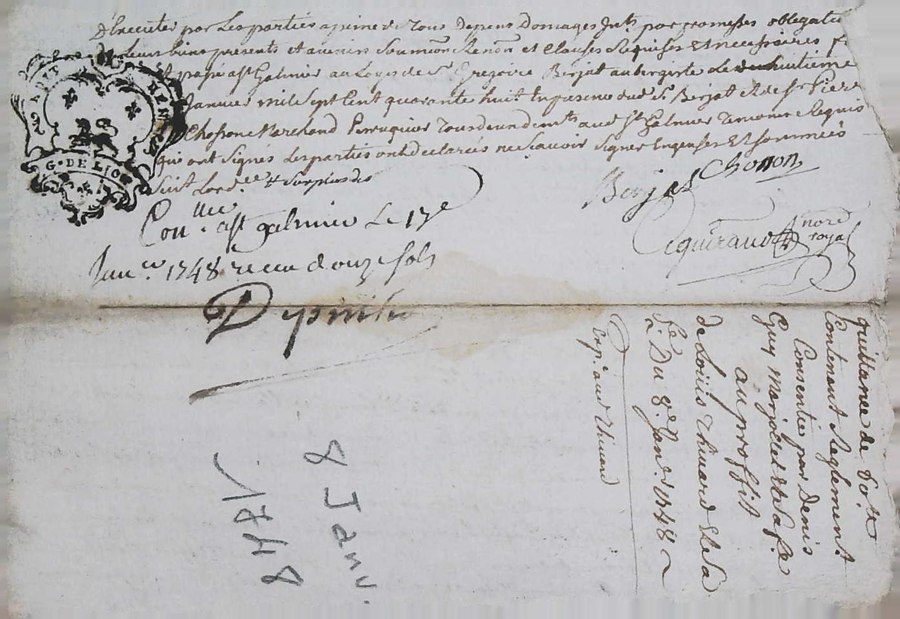 d'Executer par les parties a peine de tous depens domages Int^ts par promesses obligation
de leurs biens presents et avenir soumon Renon et Clauses Requises et necessaires f
et passé a s^t Galmier au Logis de s^r Gregoire Berjat aubergiste le huitieme
Janvier mil sept cent quarante huit En presence dud. s^r Berjat & de s^r Pierre
Chosson Marchand Perruquier tous deux demts aud. s^t Galmier Temoins Requis
qui ont signés Les parties ont declarés ne sçavoir signer Enquises Et sommées
G. DE LION
Con^llee a s^t galmier Le 17^e
Janv^er 1748 receu douze sols
Berjat Chosson
no^re
royal
quittance de 60^#
Contenant Reglement
Consentie par Denis
Guy et sa fe
au proffit
de Loüis Thivard et sa
fe Du 8^e Janv. 1748
Exp: aud Thivard
8 Janv.
1748